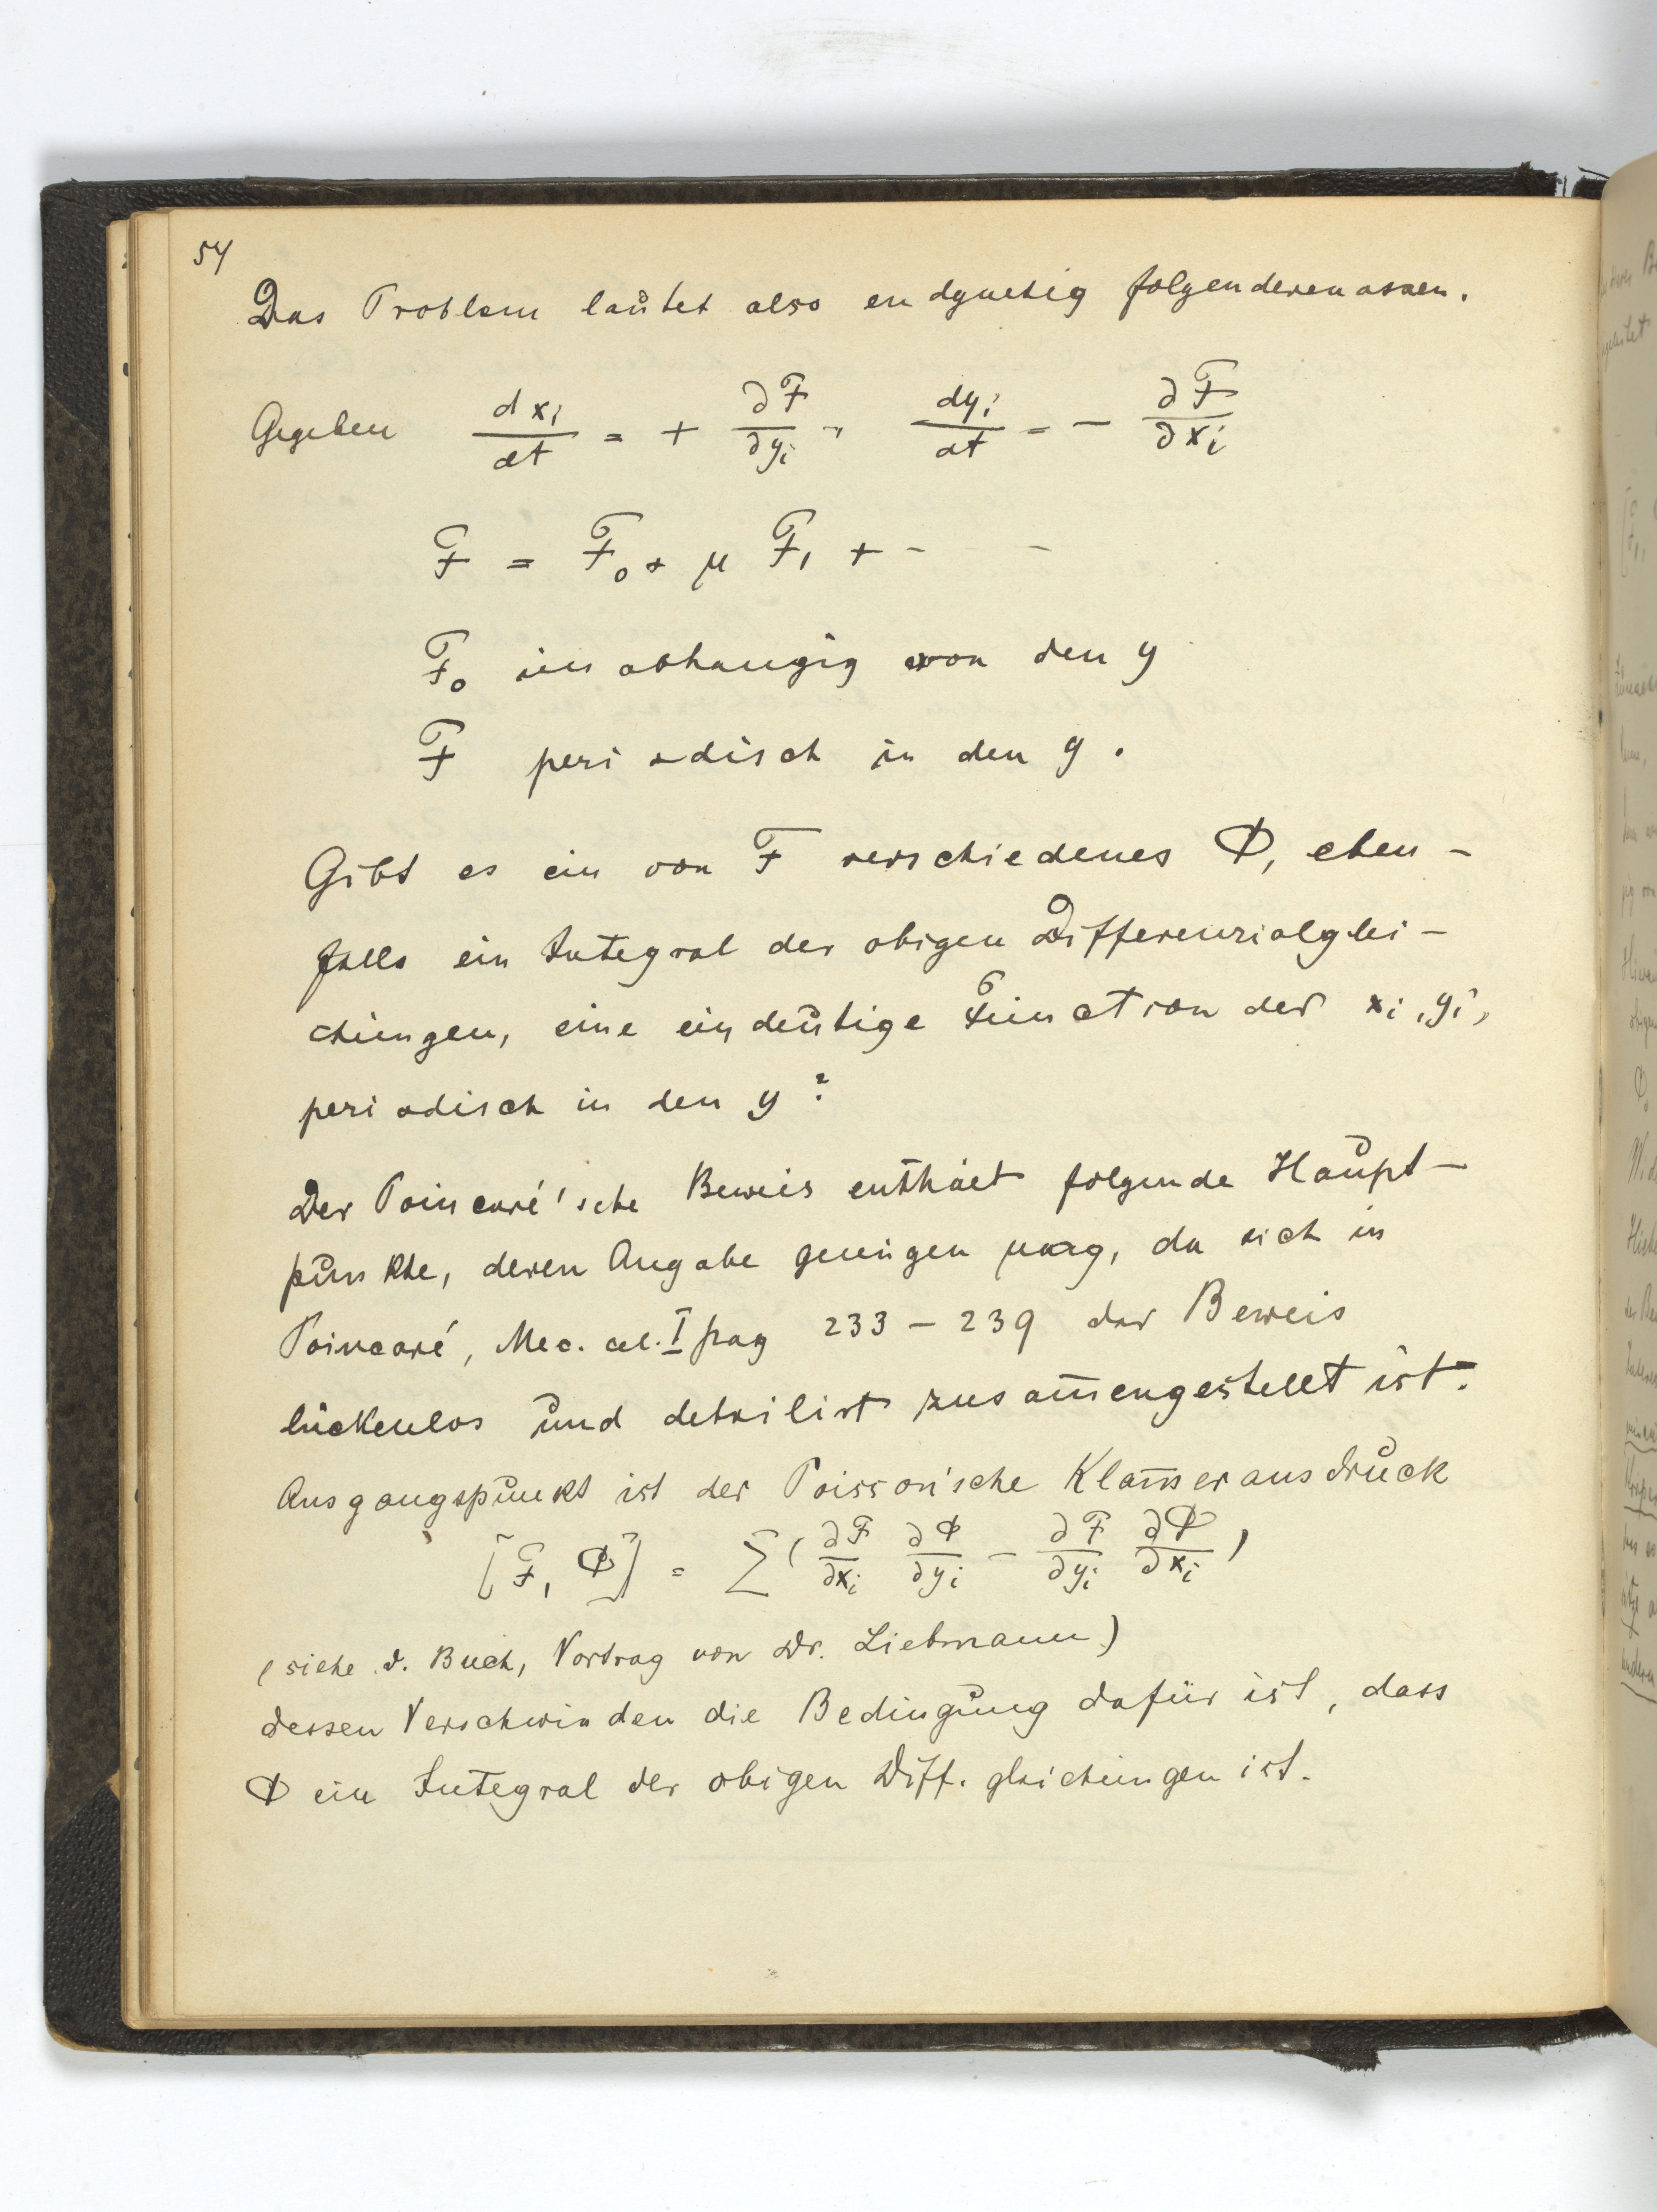 54
Das Problem lautet also endgültig folgendermassen.
Gegeben dxi/dt = + ∂F/∂yi, dyi/dt = - ∂F/∂xi
F = F0 + μ F1 + - - -
F0 unabhängig von den y
F periodisch in den y.
Gibt es ein von F verschiedenes Φ, eben-
falls ein Integral der obigen Differenzialglei-
chungen, eine eindeutige Function der xi, yi,
periodisch in den y?
Der Poincaré'sche Beweis enthält folgende Haupt-
punkte, deren Angabe genügen mag, da sich in
Poincaré, Mec. cel. I pag 233 - 239 der Beweis
lückenlos und detailirt zusam̅engestellt ist.
Ausgangspunkt ist der Poisson'sche Klam̅erausdruck
[F, Φ] = ∑ ( ∂F/∂xi ∂Φ/∂yi - ∂F/∂yi ∂Φ/∂xi )
(siehe d. Buch, Vortrag von Dr. Liebmann)
dessen Verschwinden die Bedingung dafür ist, dass
Φ ein Integral der obigen Diff. gleichungen ist.